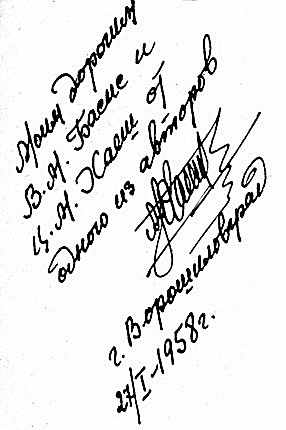 Моим дорогим
В. М. Басис и
Ц. М. Хаеш от
одного из авторов
г. Ворошиловград
27/I-1958г.